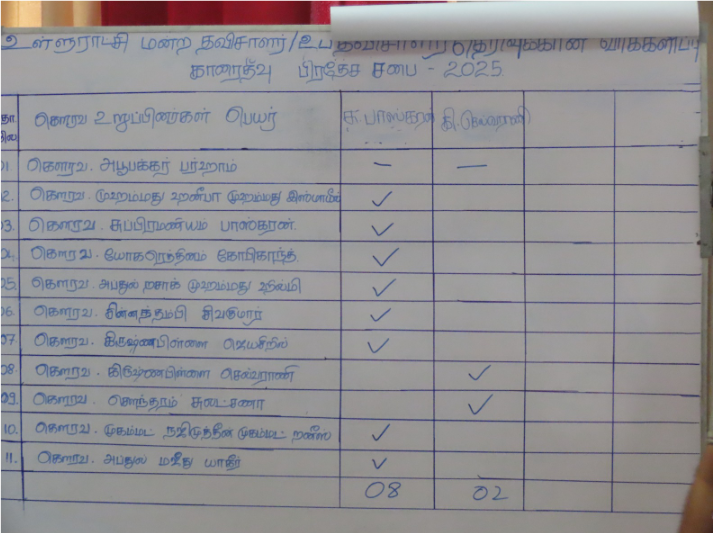 உள்ளூராட்சி மன்ற தவிசாளர்/உப தவிசாளர் தெரிவுக்கான வாக்களிப்பு
காரைதீவு பிரதேச சபை - 2025
கௌரவ உறுப்பினர்கள் பெயர் சு.பாஸ்கரன் கி.செல்வராணி
01 கௌரவ. அபூபக்கர் பர்ஹாம் — —
02. கௌரவ. முஹம்மது ஹனீபா முஹம்மது இஸ்மாயில் ✓
03. கௌரவ. சுப்பிரமணியம் பாஸ்கரன். ✓
04. கௌரவ. யோகரெத்தினம் கோபிகாந்த் ✓
05. கௌரவ. அப்துல் றசாக் முஹம்மது ஹில்மி ✓
06. கௌரவ. சின்னத்தம்பி சிவகுமார் ✓
07. கௌரவ. கிருஷ்ணபிள்ளை ஜெயசிறில் ✓
08. கௌரவ. கிருஷ்ணபிள்ளை செல்வராணி ✓
09. கௌரவ. சௌந்தரம் சுலட்சணா ✓
10. கௌரவ. முகம்மட் முகம்மட் றனீஸ் ✓
11. கௌரவ. அப்துல் மஜீது யாசீர் ✓
08 02